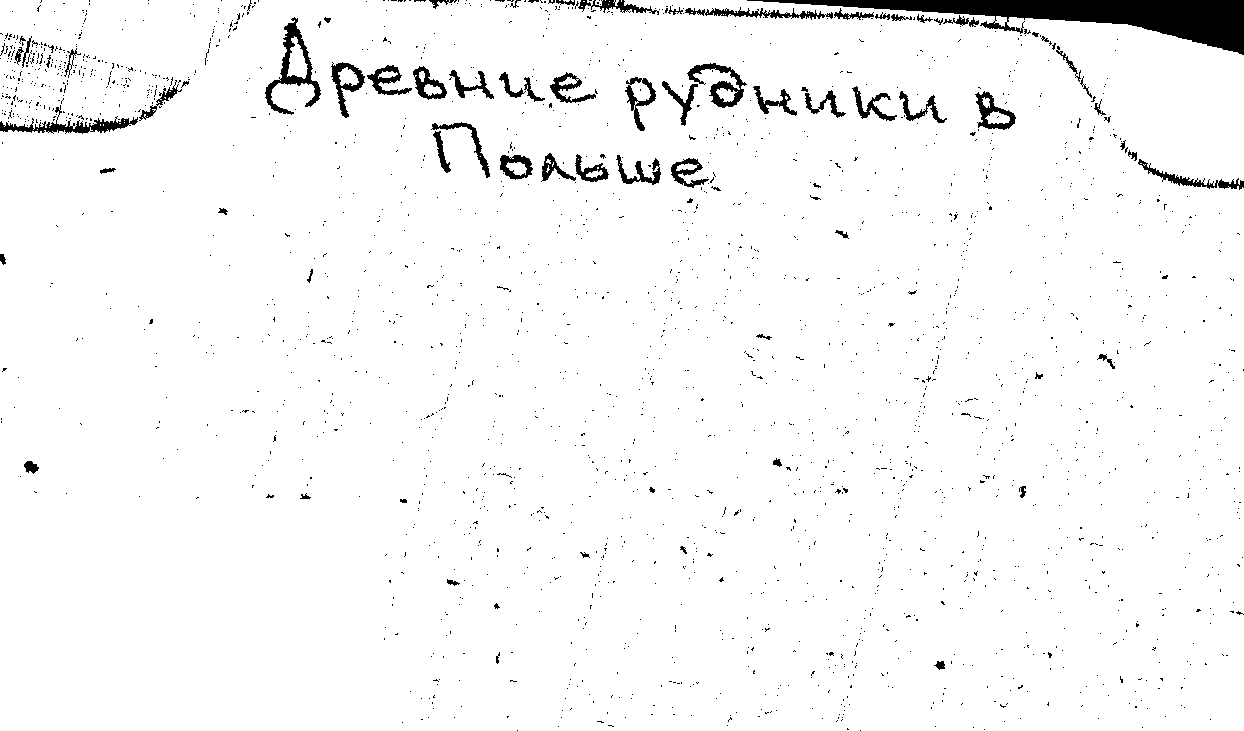 Древние рудники в
Польше